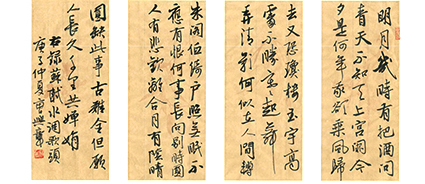 明月幾時有把酒問
青天不知天上宮闕今
夕是何年我欲乘風歸
去又恐瓊樓玉宇高
處不勝寒起舞
弄清影何似在人間轉
朱閣低綺戶照無眠不
應有恨何事長向別時圓
人有悲歡離合月有陰晴
圓缺此事古難全但願
人長久千里共嬋娟
右錄蘇軾水調歌頭
庚子仲夏